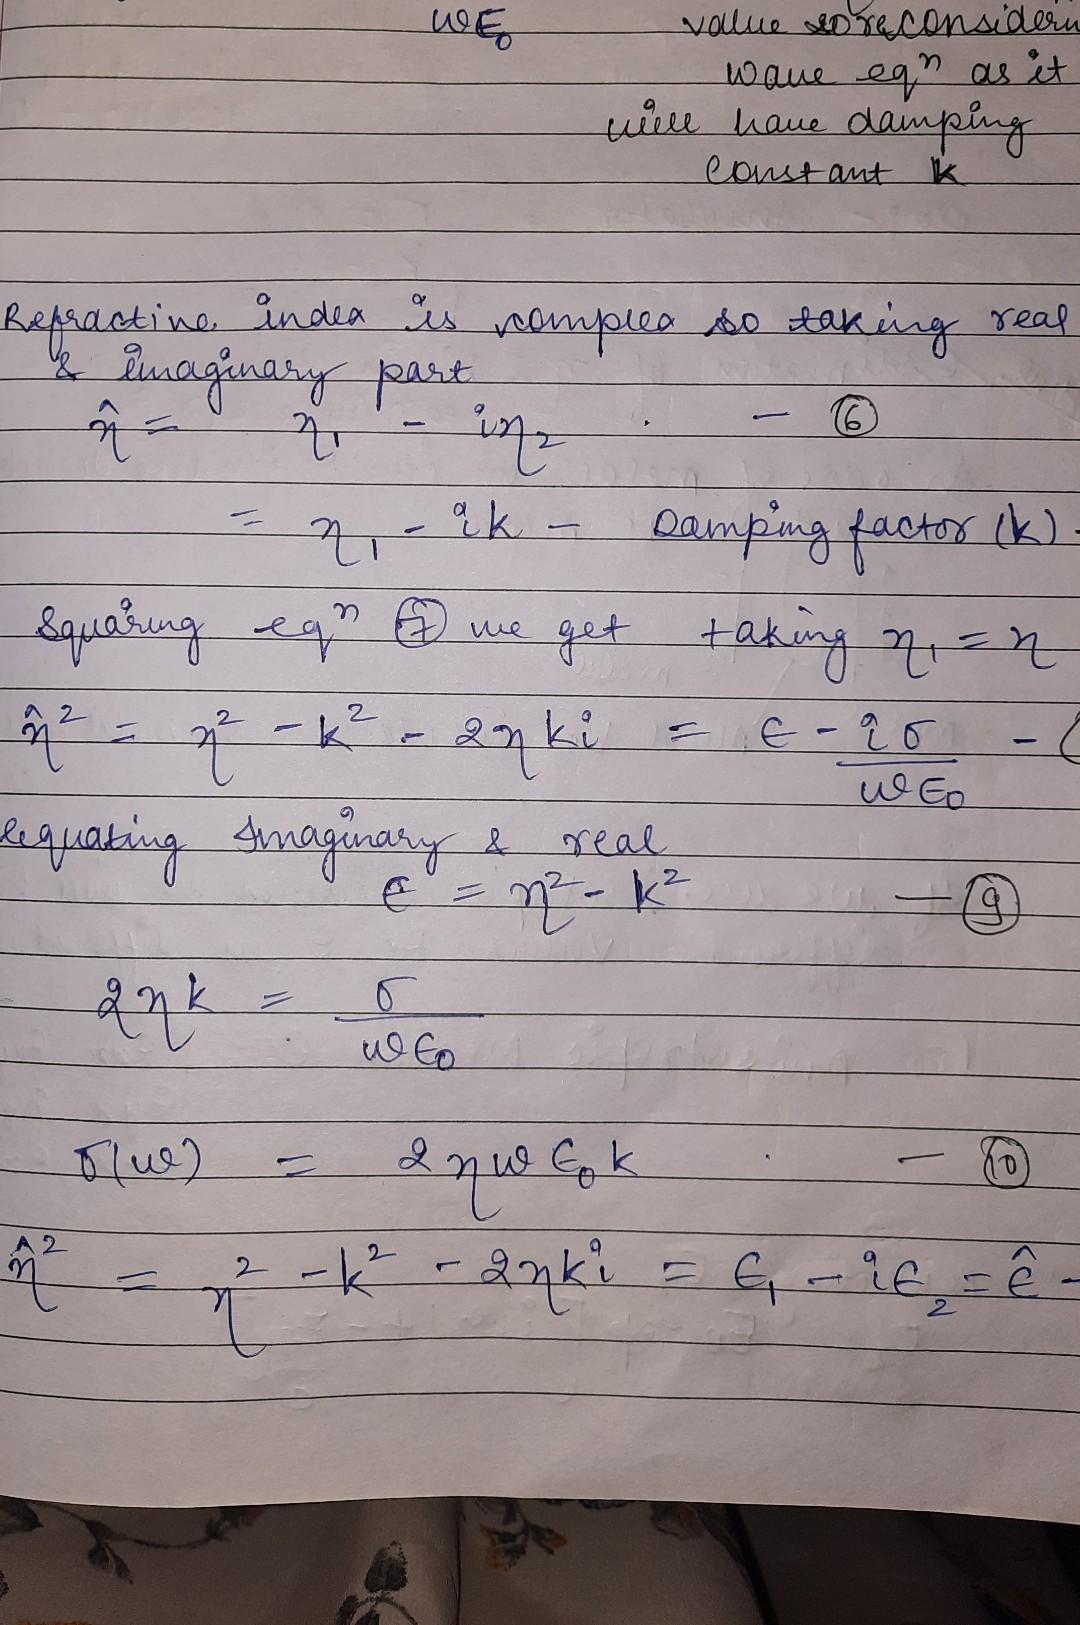 ωϵ₀ value so reconsiderin
wave eqⁿ as it
will have damping
constant k
Refractive index is complex so taking real
& imaginary part
η̂ = η₁ - iη₂ - ⑥
= η₁ - ik - Damping factor (k) -
Squaring eqⁿ ⑦ we get taking η₁ = η
η̂² = η² - k² - 2ηki = ϵ - iσ/ωϵ₀ -
equating Imaginary & real
ϵ = η² - k² - ⑨
2ηk = σ/ωϵ₀
σ(ω) = 2ηωϵ₀k - ⑩
η̂² = η² - k² - 2ηki = ϵ₁ - iϵ₂ = ϵ̂ -